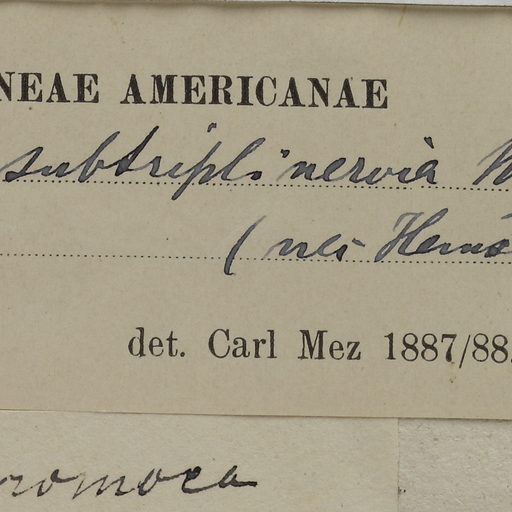 NEAE AMERICANAE
subtriplinervia
(
det. Carl Mez 1887/88.
romoea